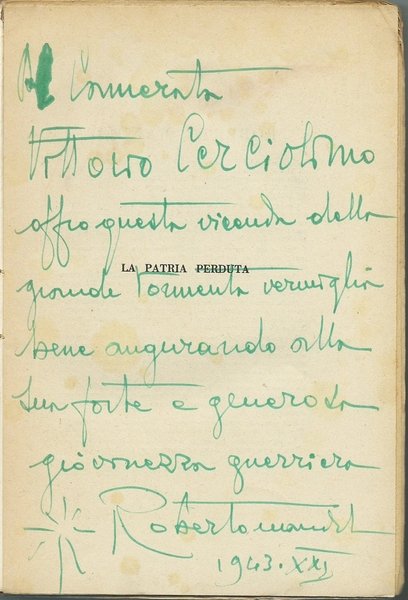 Al Camerata
Vittorio Cerciolimo
offro questa vicenda della
LA PATRIA PERDUTA
grande tormenta vermiglia
bene augurando alla
sua forte e generosa
giovinezza guerriera
Roberto Mandel
1943·XXI